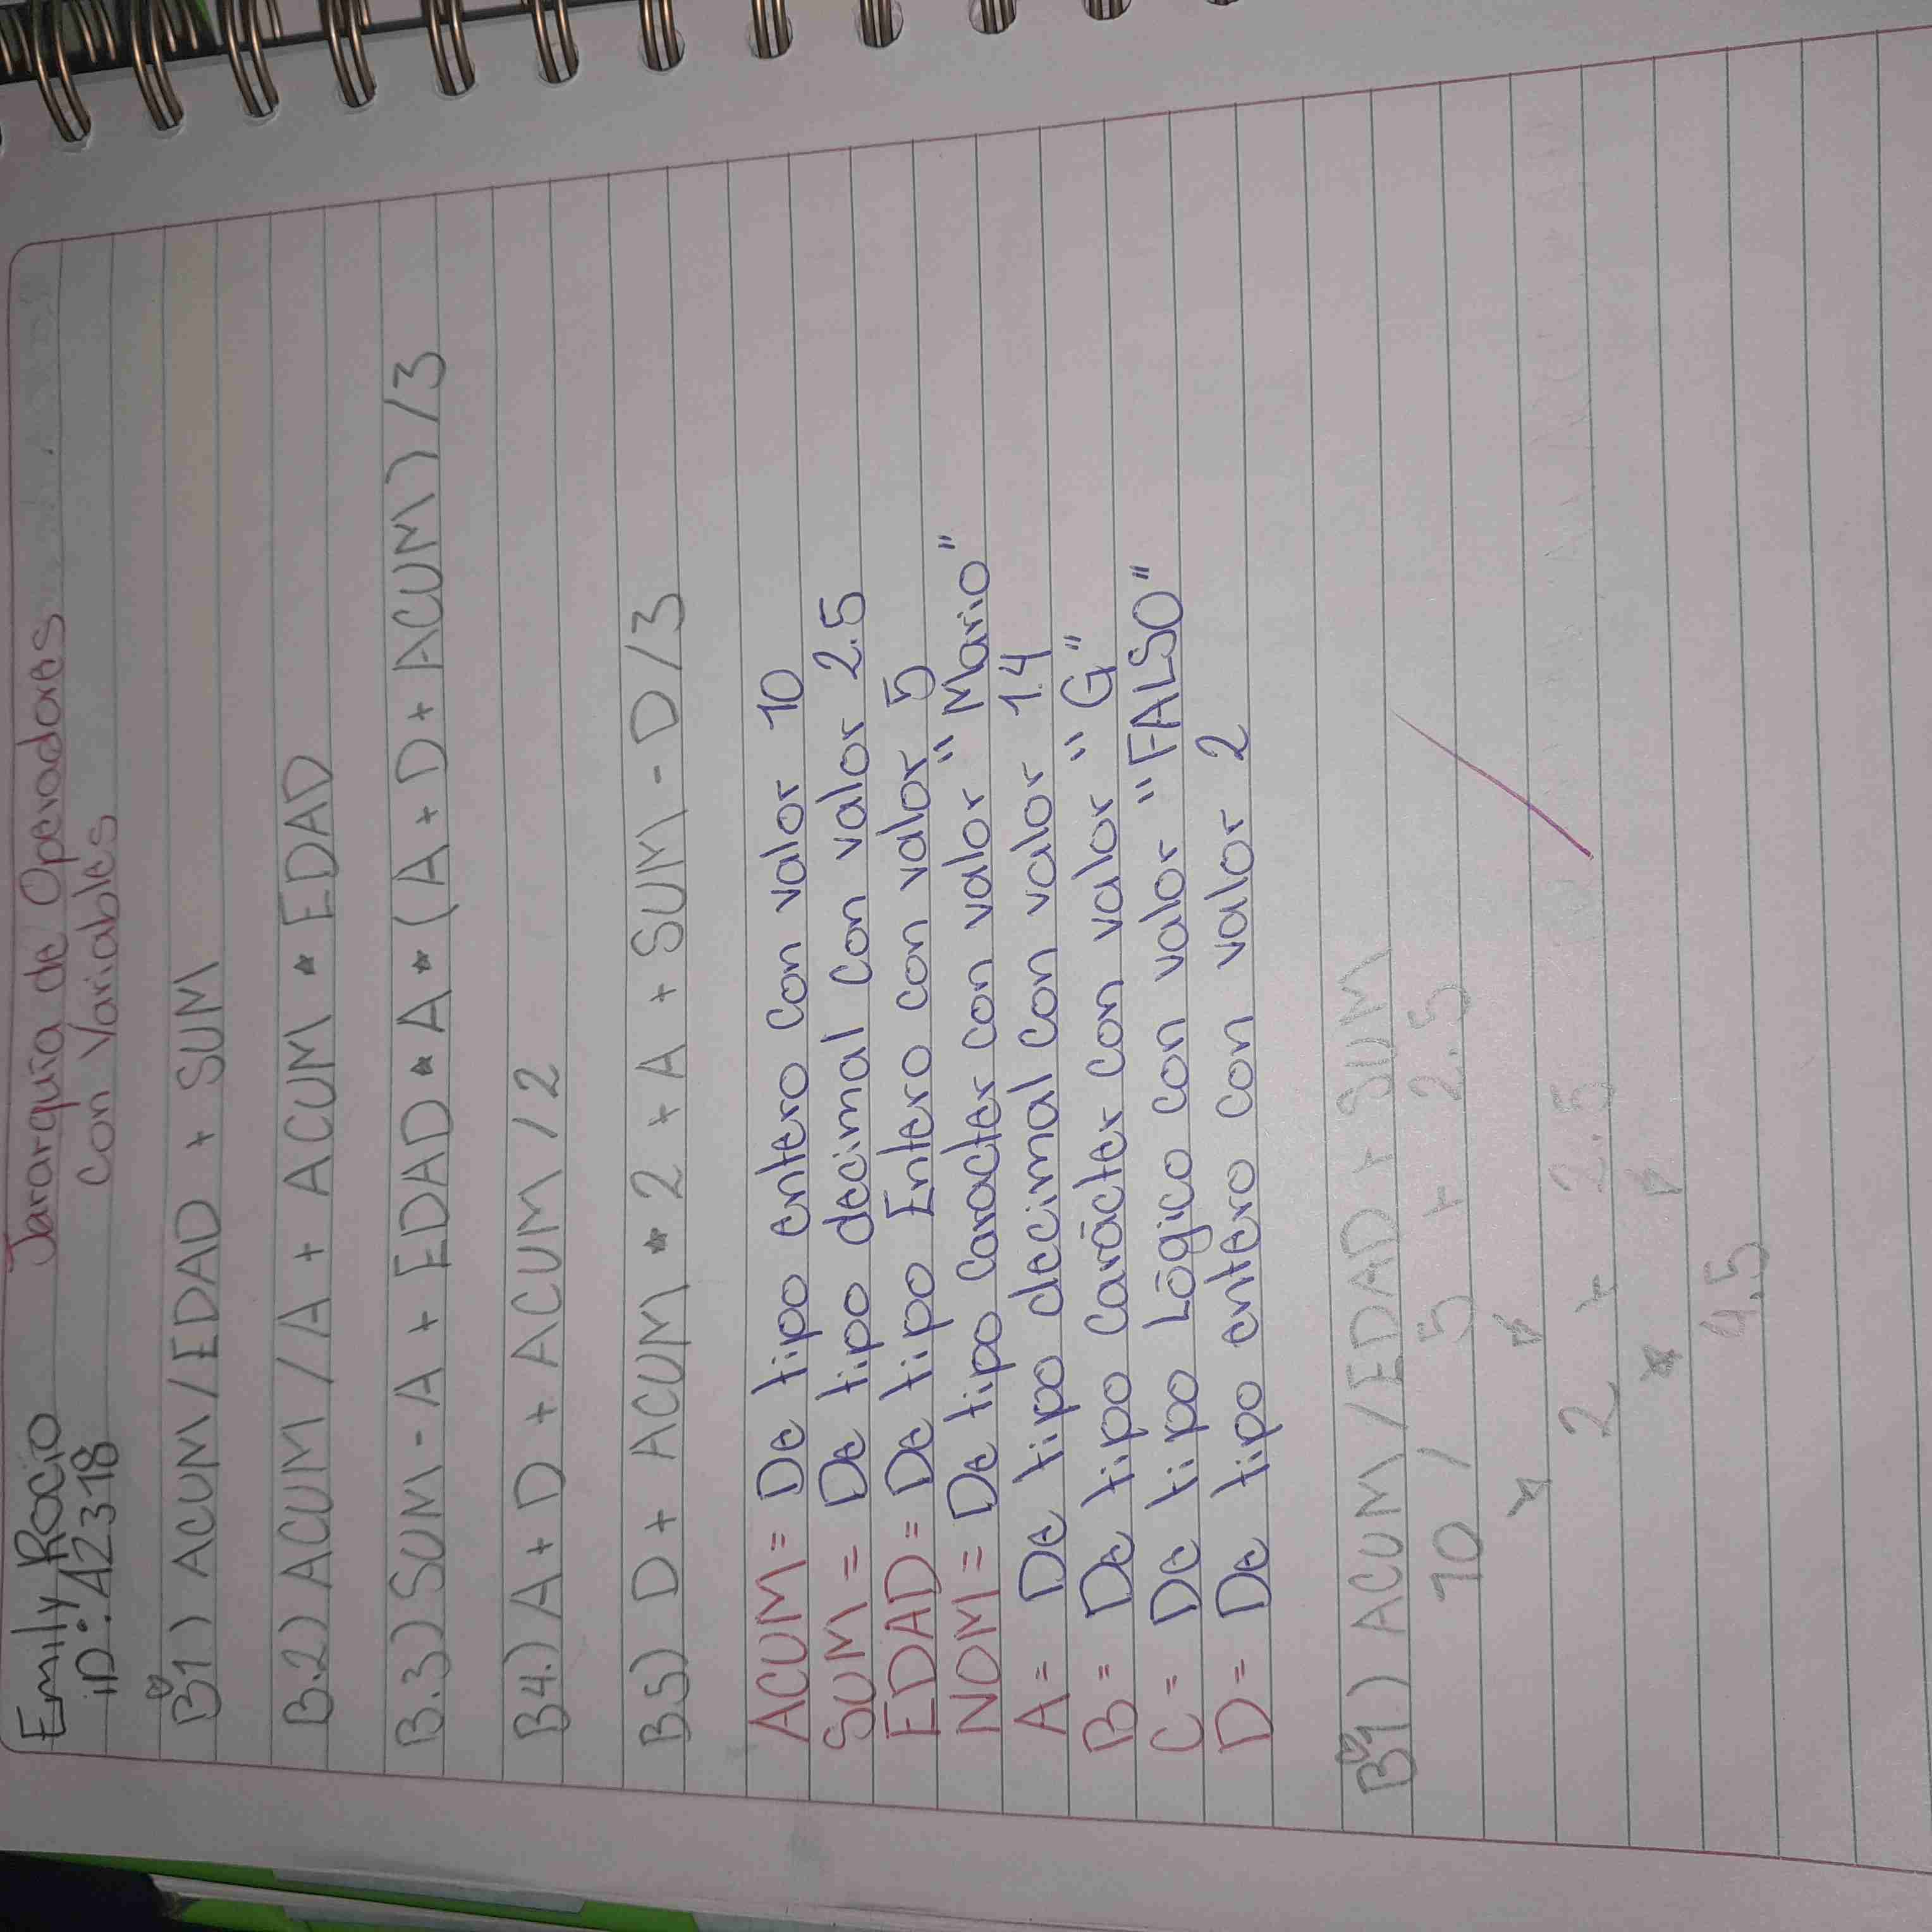 Emily Rocio Jararquía de Operadores
iD: 42318 con Variables
B1) ACUM/EDAD + SUM
B.2) ACUM / A + ACUM * EDAD
B.3) SUM - A + EDAD * A * (A + D + ACUM) / 3
B4.) A + D + ACUM / 2
B.5) D + ACUM * 2 + A + SUM - D / 3
ACUM = De tipo entero con valor 10
SUM = De tipo decimal con valor 2.5
EDAD = De tipo Entero con valor 5
NOM = De tipo caracter con valor "Mario"
A = De tipo decimal con valor 1.4
B = De tipo carácter con valor "G"
C = De tipo Lógico con valor "FALSO"
D = De tipo entero con valor 2
B1) ACUM/EDAD + SUM
10 / 5 + 2.5
2 + 2.5
4.5